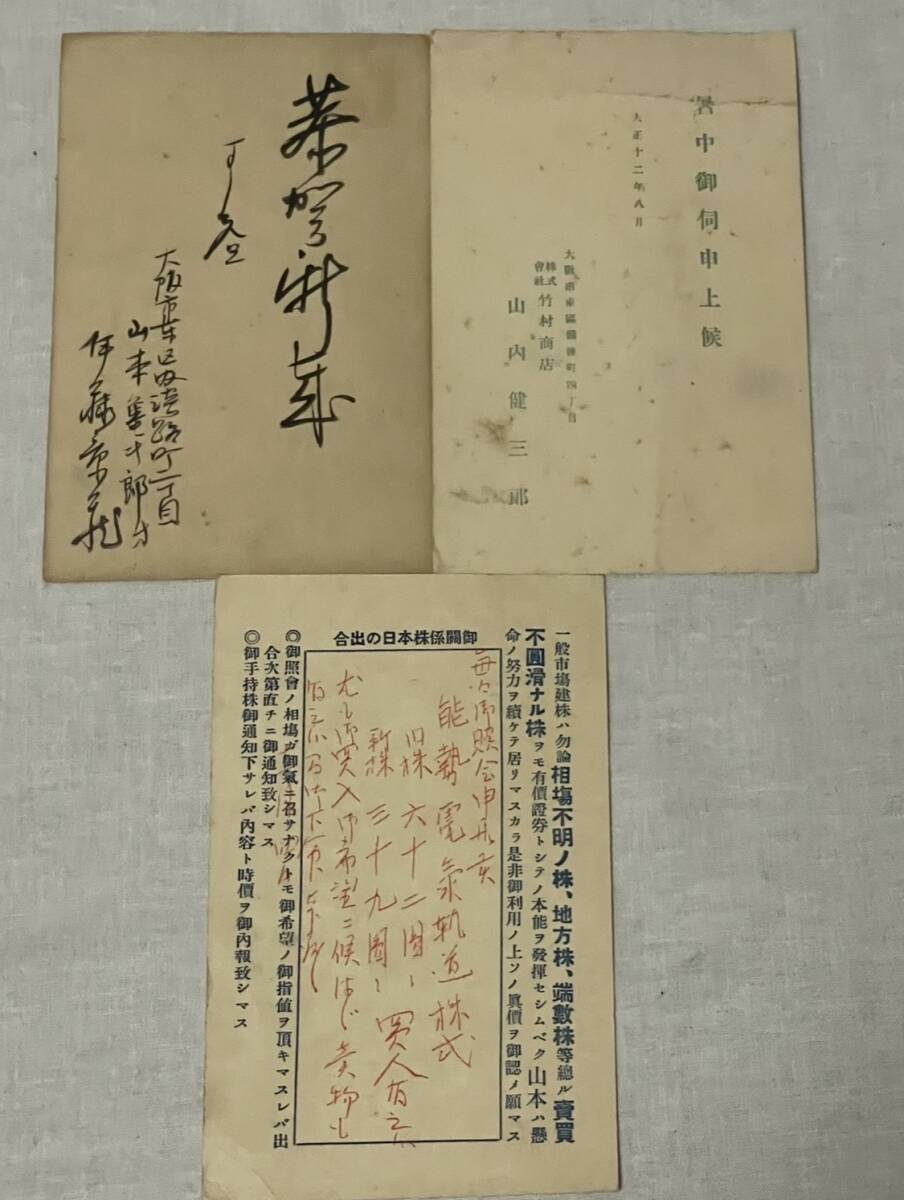 暑中御伺申上候
大正十二年八月
大阪市東區備後町四丁目
株式會社 竹村商店
山内健三郎
恭賀新年
一月元旦
大阪市東区淡路町二丁目
山本
伊藤
一般市場建株ハ勿論相場不明ノ株、地方株、端數株等總ル賣買
不圓滑ナル株ヲモ有價證券トシテノ本能ヲ發揮セシムベク山本ハ懸
命ノ努力ヲ續ケテ居リマスカラ是非御利用ノ上ソノ眞價ヲ御認メ願マス
御關係株本日の出合
毎々御照会申上候
能勢電氣軌道株式
旧株 六十二圓
新株 三十九圓 買人有之
尤も御買入御希望ニ候はゞ賣物も
◎御照會ノ相場ガ御氣ニ召サナクトモ御希望ノ御指値ヲ頂キマスレバ出
合次第直チニ御通知致シマス
◎御手持株御通知下サレバ内容ト時價ヲ御内報致シマス